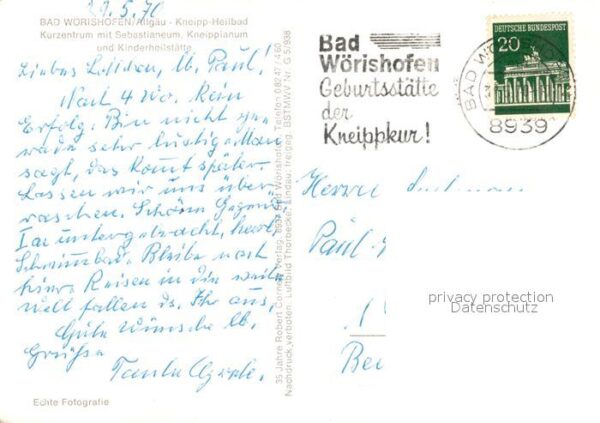 29.5.70
BAD WÖRISHOFEN/Allgäu - Kneipp-Heilbad
Kurzentrum mit Sebastianeum, Kneippianum
und Kinderheilstätte
Liebes Lottchen, lb. Paul!
Nach 4 Wo. kein
Erfolg. Bin nicht ge
rade sehr lustig. Man
sagt, das komt später.
Lassen wir uns über
raschen. Schöne Gegend,
untergebracht,
Schwimbad. Bleibe noch
hier. Reisen in die weite
welt fallen aus.
Gute Wünsche lb.
Grüße
Tante
Echte Fotografie
35 Jahre Robert Verlag, 8939 Bad Wörishofen, Telefon 08247/460
Nachdruck verboten. Luftbild Thorbecke, Lindau, freigeg. BSTMWV Nr. G 5/938
Bad
Wörishofen
Geburtsstätte
der
Kneippkur!
DEUTSCHE BUNDESPOST
20
BAD WÖ
8939
Herrn
Paul-
privacy protection
Datenschutz